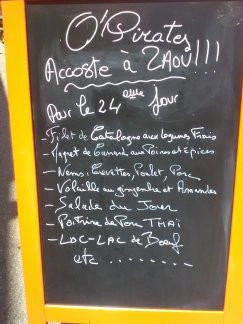 O'Pirates
Accoste à ZAOU!!!
Pour le 24ème Jour
- Filet de Catalogne aux légumes Frais
- Magret de Canard aux Poires et épices
- Nems: Crevettes, Poulet, Porc
- Volaille au gingembre et Amandes
- Salade du Jour
- Poitrine de Porc THAÏ
- LOC-LAC de Boeuf
etc .........